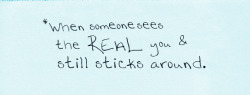 *When someone sees
the REAL you &
still sticks around.